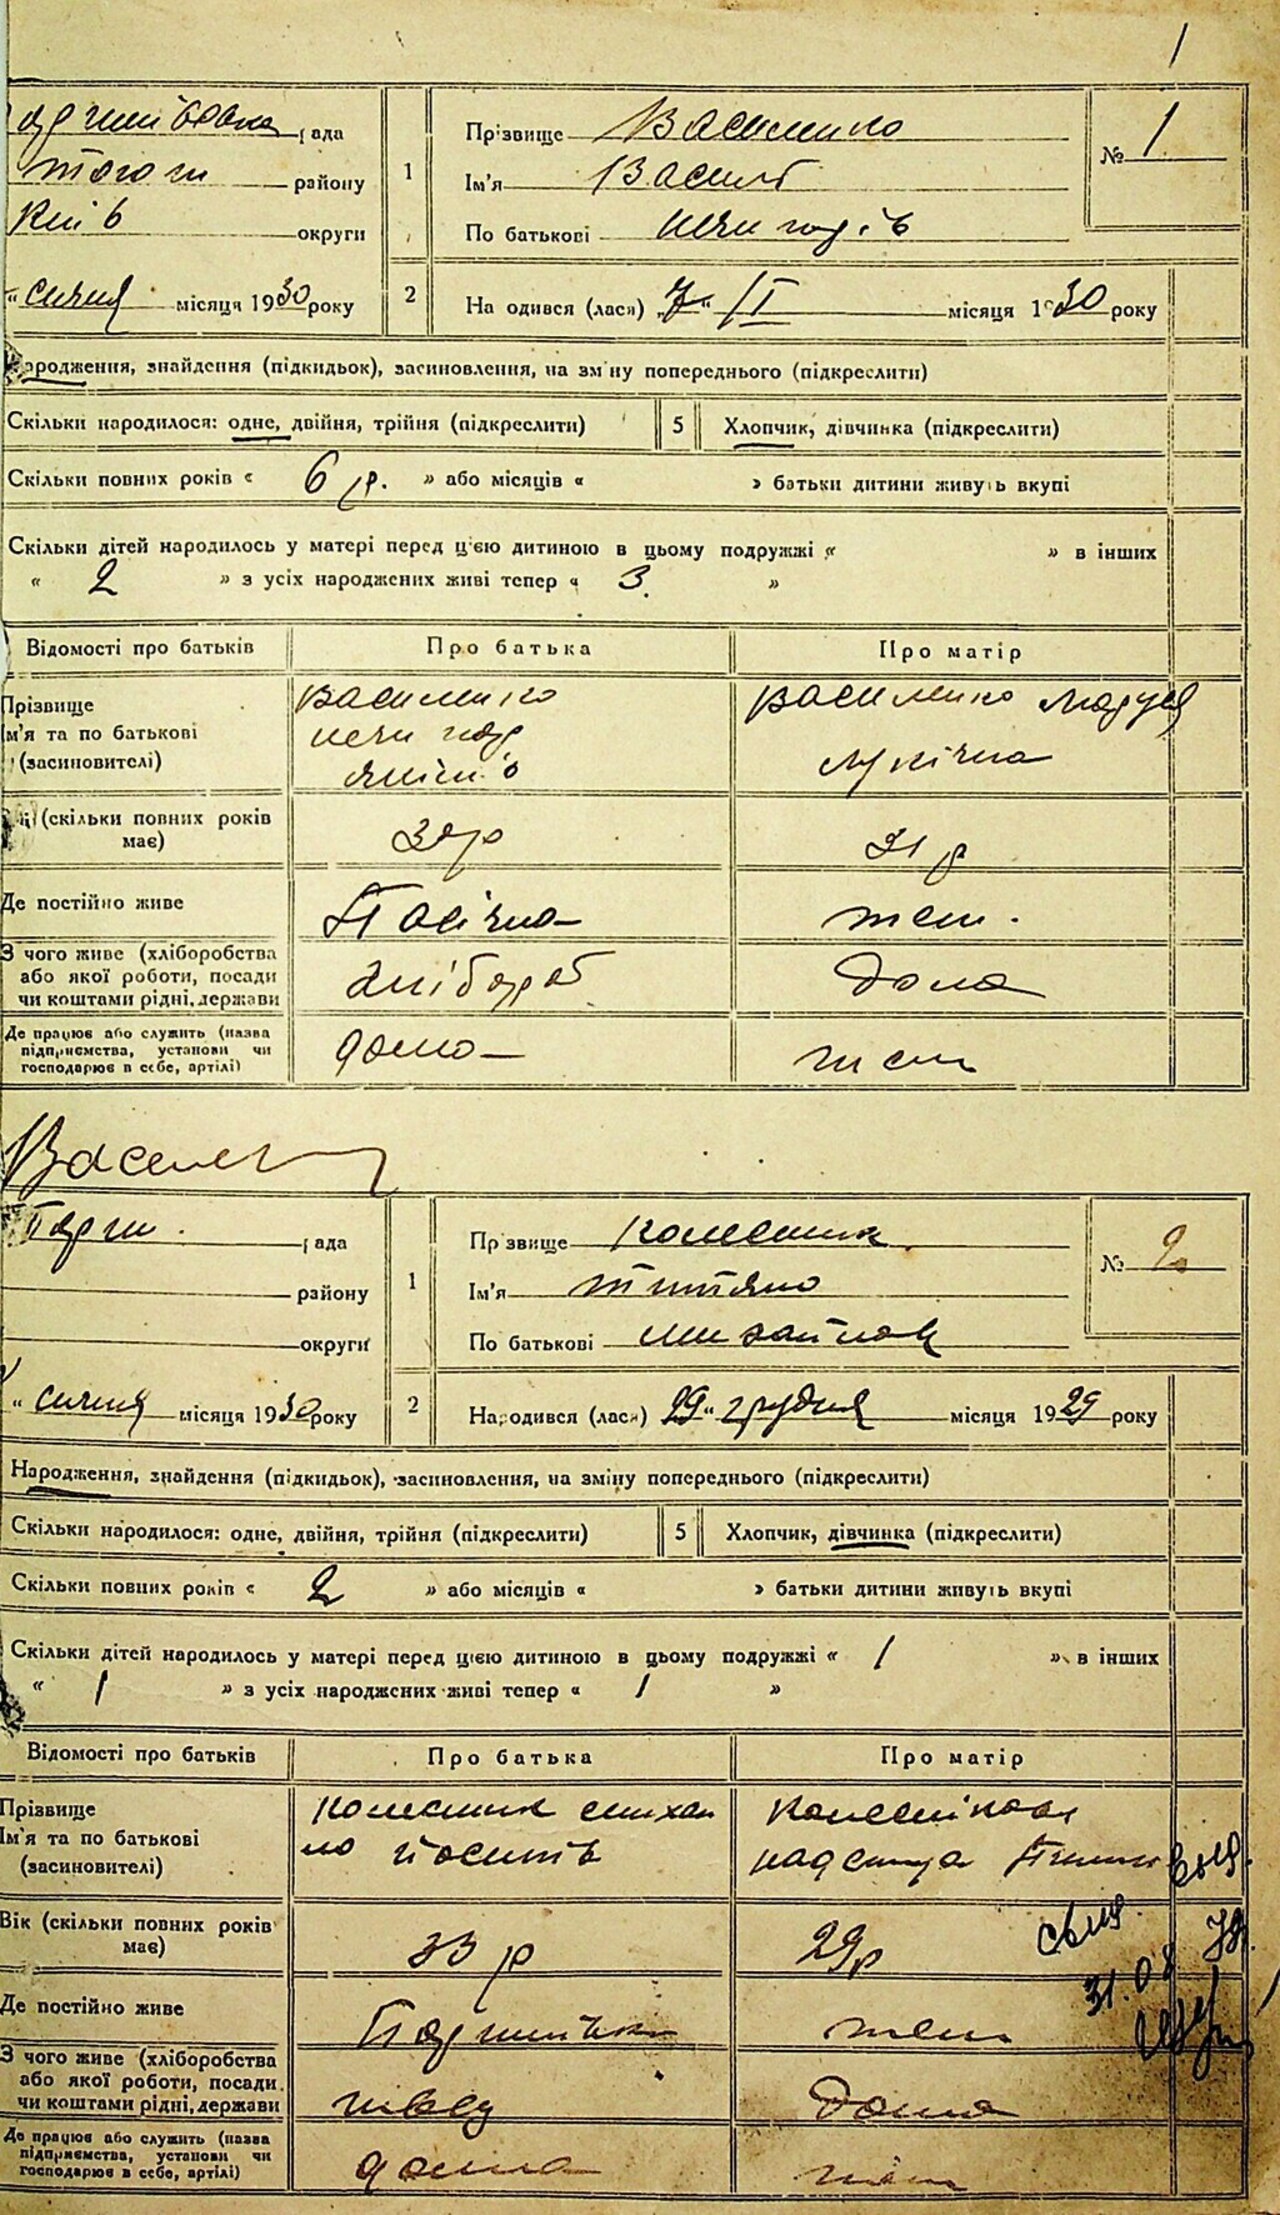 1
рада
району
Київ округи
1
Прізвище Василенко
Ім'я Василь
По батькові
№ 1
" січня місяця 1930 року
2
На одився (лася) „7" /I місяця 1930 року
ародження, знайдення (підкидьок), засиновлення, на зміну попереднього (підкреслити)
Скільки народилося: одне, двійня, трійня (підкреслити)
5
Хлопчик, дівчинка (підкреслити)
Скільки повних років « 6 р. » або місяців « » батьки дитини живуть вкупі
Скільки дітей народилось у матері перед цією дитиною в цьому подружжі « » в інших
« 2 » з усіх народжених живі тепер « 3. »
Відомості про батьків
Про батька
Про матір
Прізвище
м'я та по батькові
(засиновителі)
Василенко
Василенко
(скільки повних років
має)
р
31 р
Де постійно живе
Пасічна
теж.
З чого живе (хліборобства
або якої роботи, посади
чи коштами рідні, держави
хлібороб
Дома
Де працює або служить (назва
підприємства, установи чи
господарює в себе, артілі)
дома
теж
рада
району
округи
1
Пр звище Колесник
Ім'я Титяна
По батькові Михайлов
№ 2
" січня місяця 1930 року
2
Народився (лася) 29 " грудня місяця 1929 року
Народження, знайдення (підкидьок), засиновлення, на зміну попереднього (підкреслити)
Скільки народилося: одне, двійня, трійня (підкреслити)
5
Хлопчик, дівчинка (підкреслити)
Скільки повних років « 2 » або місяців « » батьки дитини живуть вкупі
Скільки дітей народилось у матері перед цією дитиною в цьому подружжі « 1 » в інших
« 1 » з усіх народжених живі тепер « 1 »
Відомості про батьків
Про батька
Про матір
Прізвище
Ім'я та по батькові
(засиновителі)
Колесник Михай
ло Йосипів
Колеснікова
Вік (скільки повних років
має)
33 р
29 р
31.08
Де постійно живе
теж
З чого живе (хліборобства
або якої роботи, посади
чи коштами рідні, держави
швец
Дома
Де працює або служить (назва
підприємства, установи чи
господарює в себе, артілі)
дома
теж